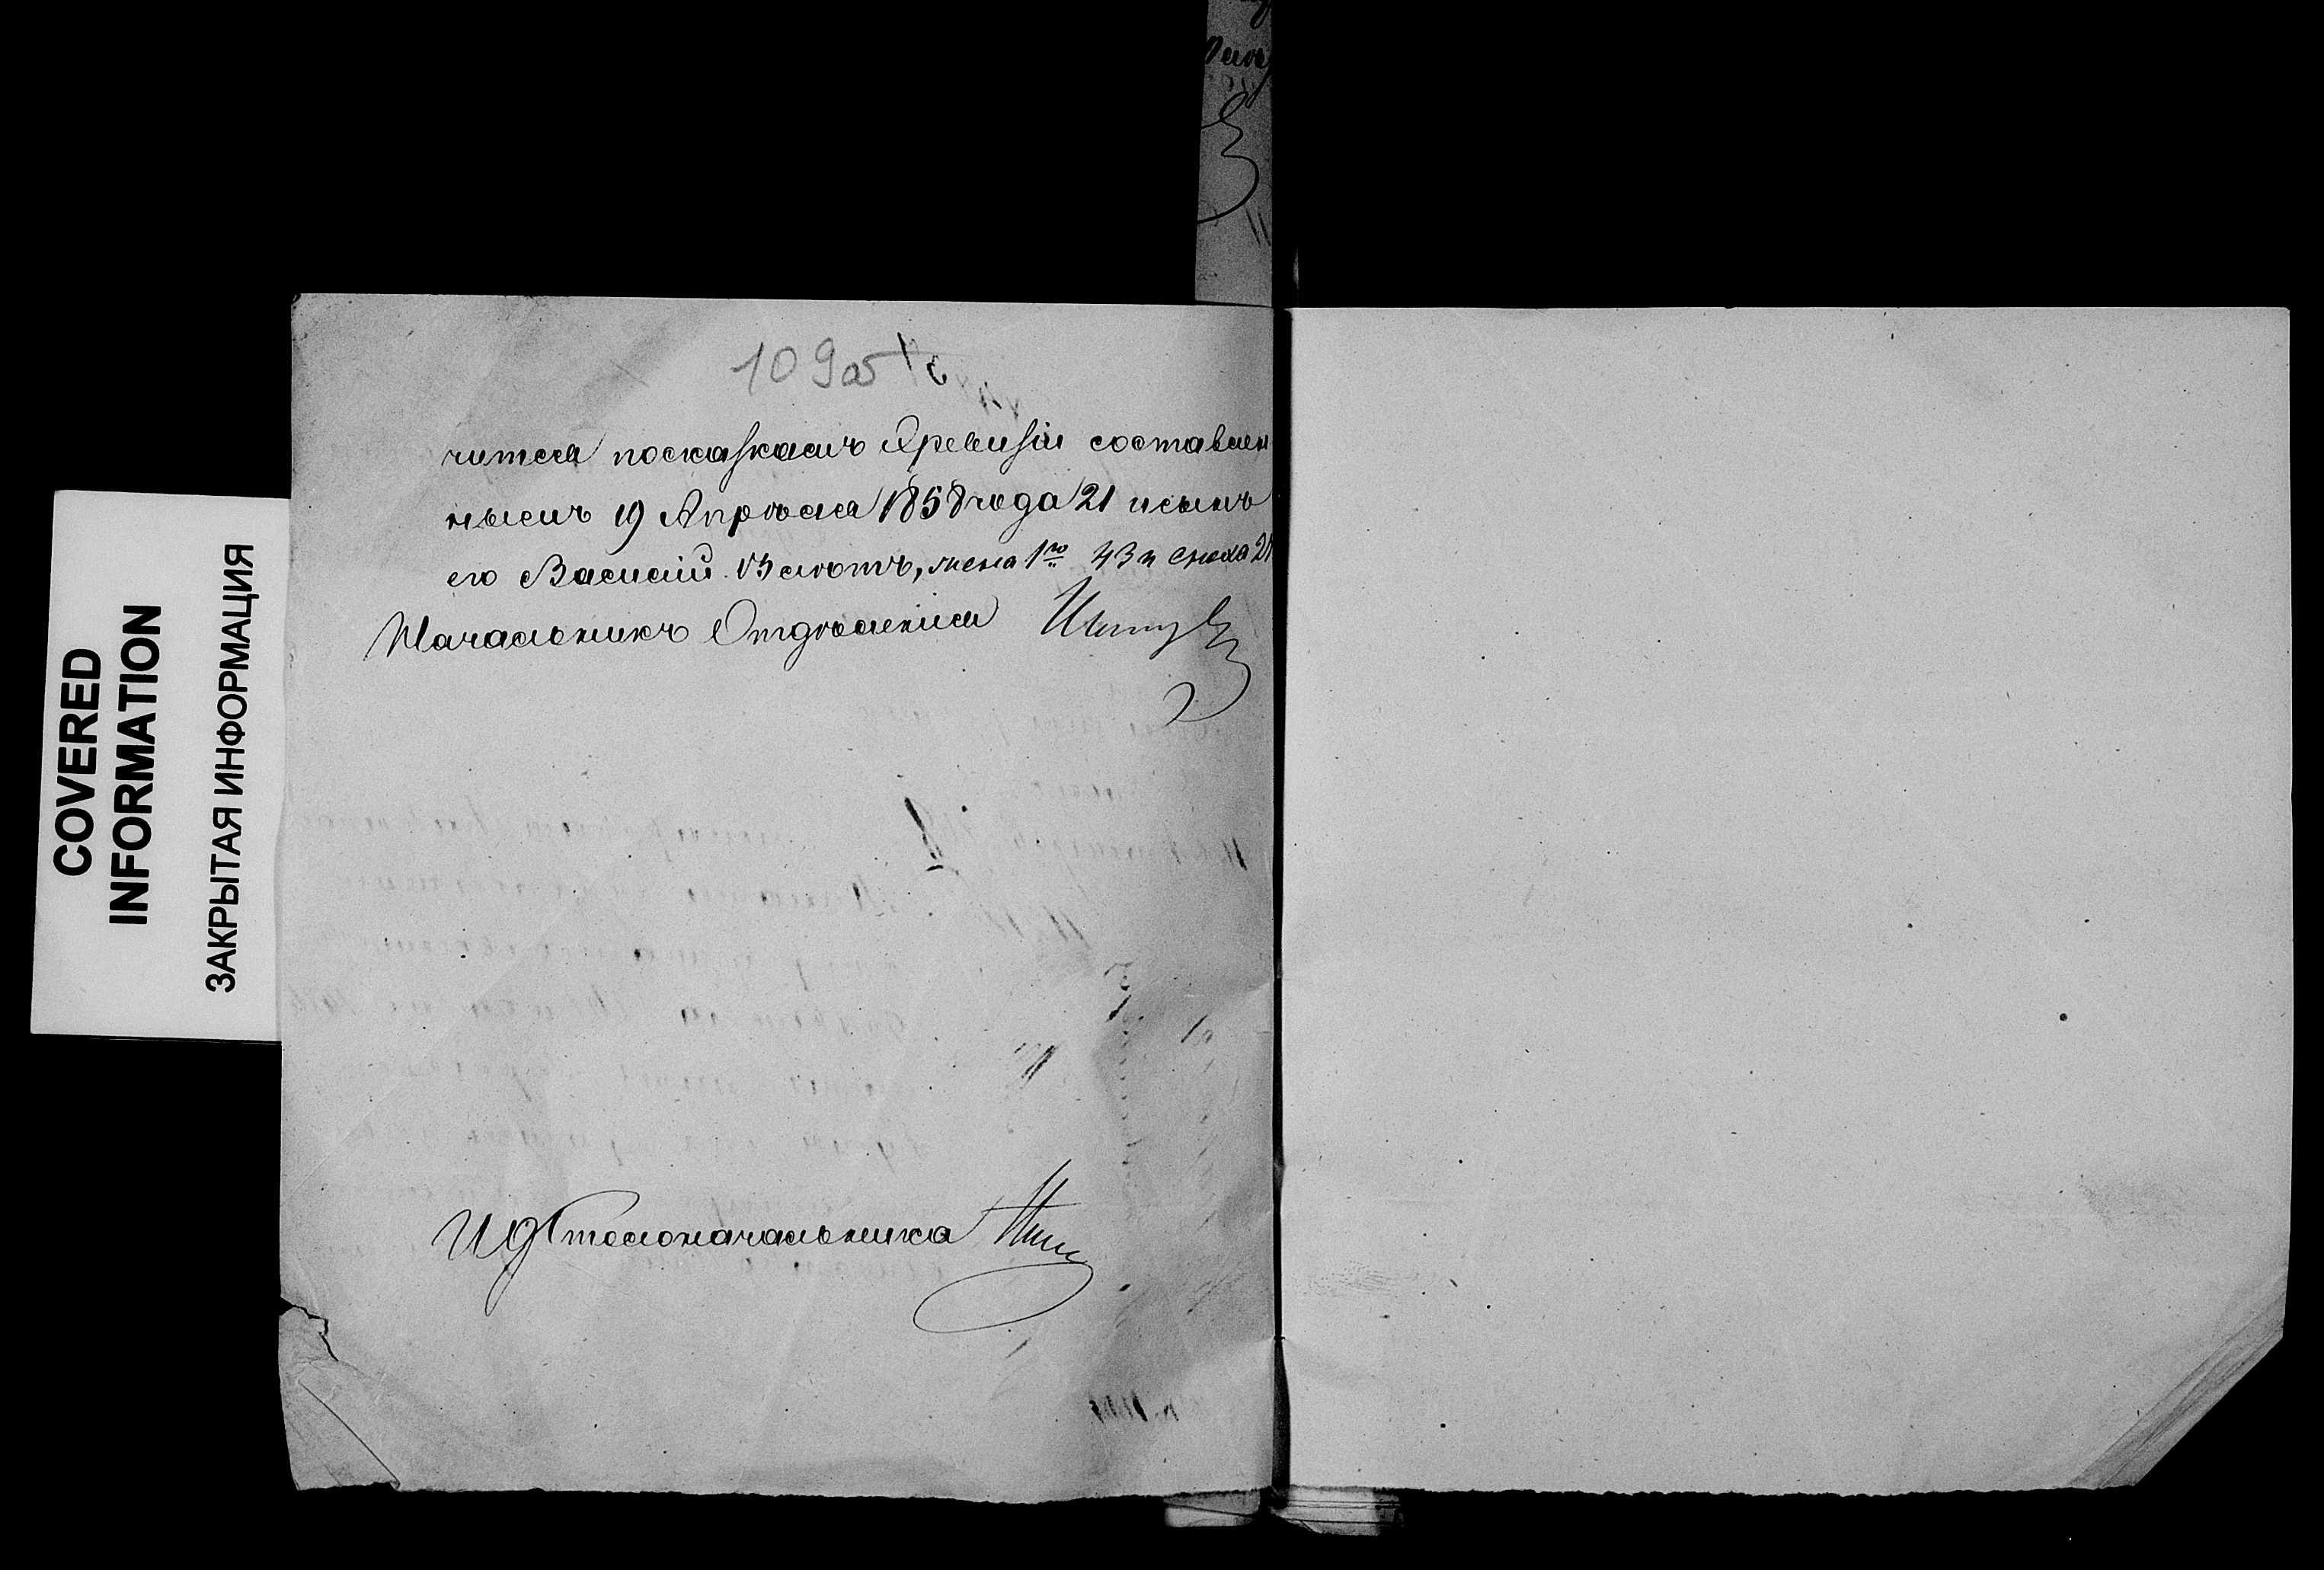 COVERED
INFORMATION
ЗАКРЫТАЯ ИНФОРМАЦИЯ
109об
чится посказкамъ Хревизiи составлен
нымъ 19 Апрѣля 1858 года 21 исынъ
его Василiй 13 лѣтъ, жена 1го 43 и сноха 21
Начальникъ Отдѣленiя
ИД Столоначальника